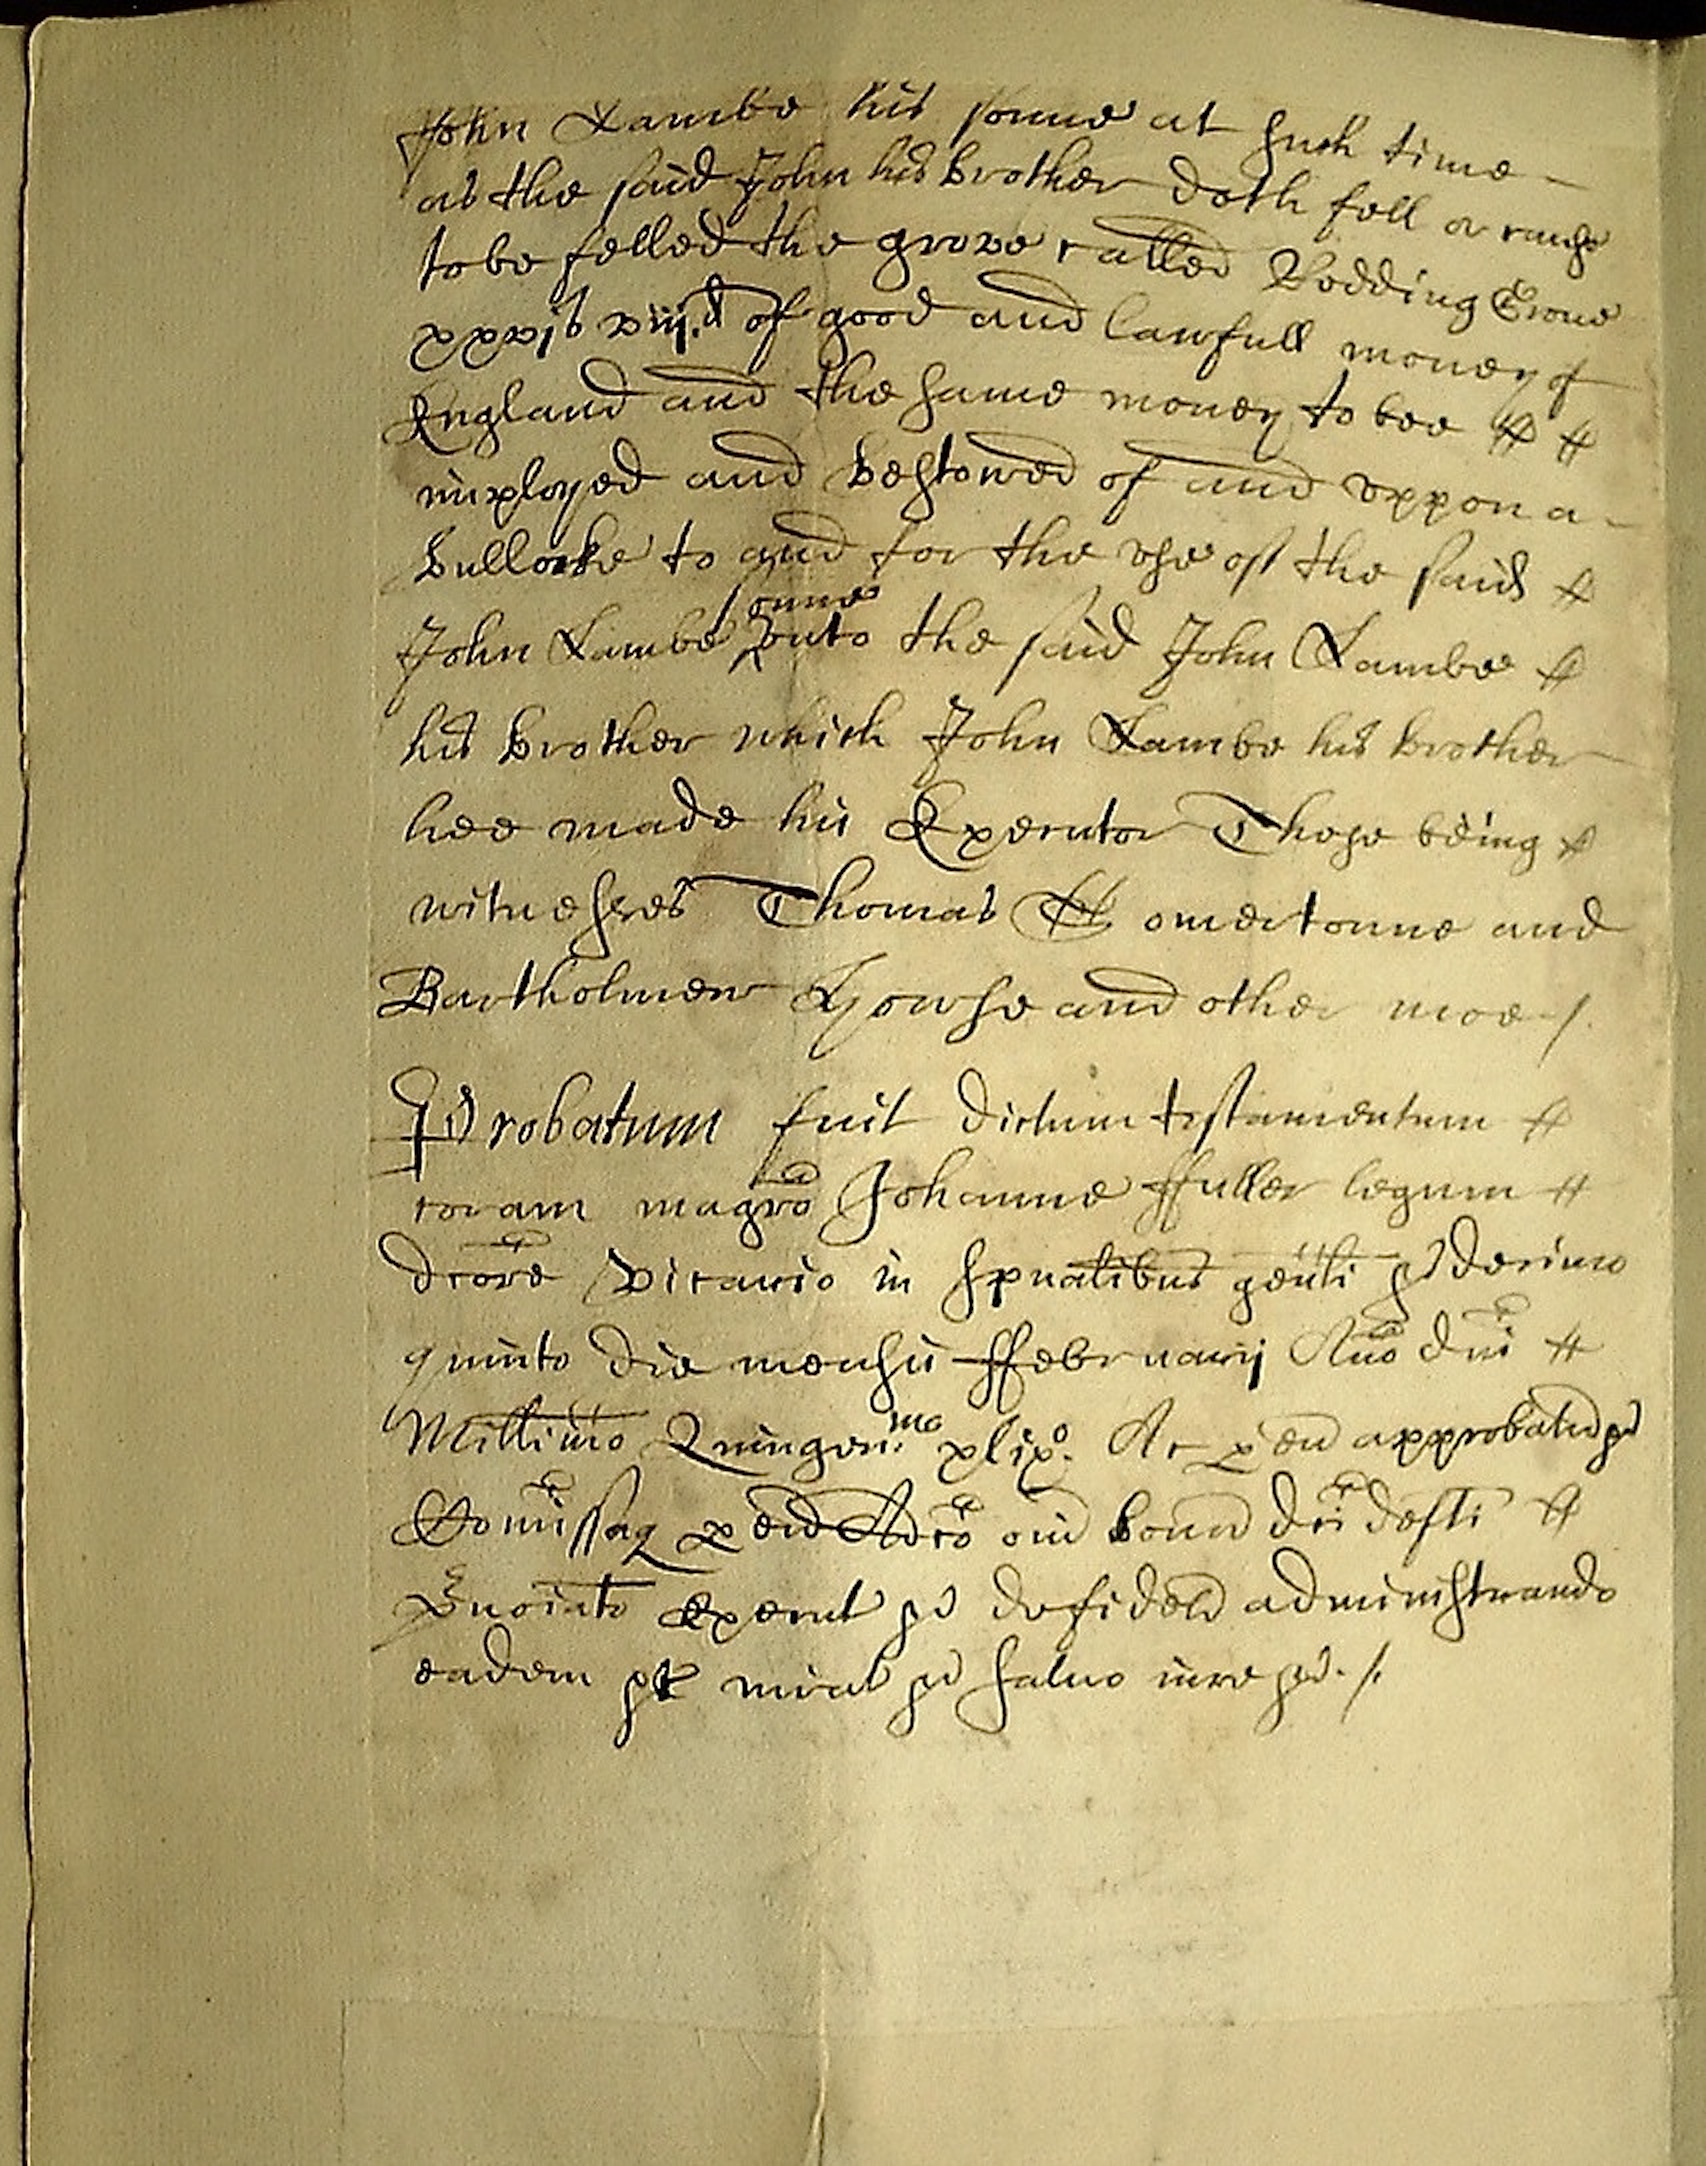 John Lambe his sonne at such time
as the said John his brother doth fell or cause
to be felled the grove called Bedding Grove
xxvjs viij.d of good and lawfull money of
England and the same money to bee
imployed and bestowed of and uppon a
bullocke to and for the use of the said
John Lambe sonne unto the said John Lambe
his brother which John Lambe his brother
hee made his Executor These being
witnesses Thomas Somertonne and
Bartholmew Howse and other moe /.
Probatum fuit dictum testamentum
coram magro Johanne ffuller legum
dcore vicario in spualibus genli pd decimo
quinto die mensis ffebruarij Ano dni
Millimo Quingenmo xlixo. Ac p eu approbatu pd
Comissaq p eu Adco oim bonu dci defti
Executo pd de fideli administrando
eadem pd salvo iure pd. /.